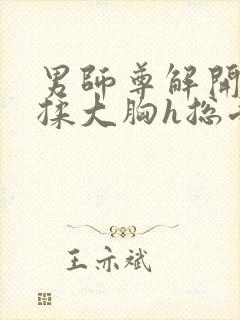 男師尊解開
揉大胸h総
王亦斌